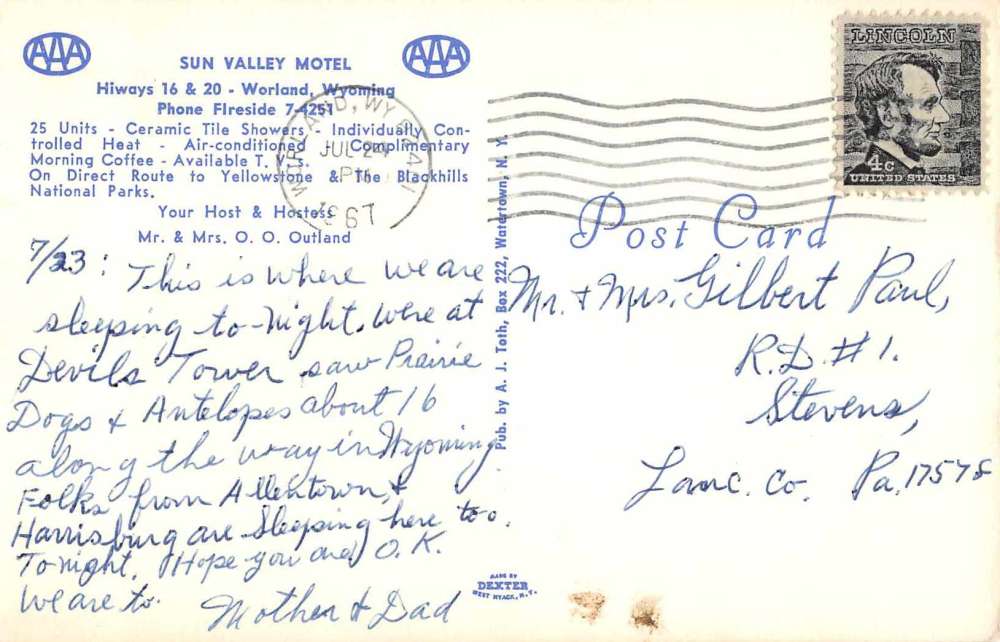 AAA AAA
SUN VALLEY MOTEL
Hiways 16 & 20 - Worland, Wyoming
Phone FIreside 7-4251
25 Units - Ceramic Tile Showers - Individually Con-
trolled Heat - Air-conditioned - Complimentary
Morning Coffee - Available T. V.'s.
On Direct Route to Yellowstone & The Blackhills
National Parks.
Your Host & Hostess
Mr. & Mrs. O. O. Outland
7/23: This is where we are
sleeping to-night. were at
Devils Tower saw Prairie
Dogs & Antelopes about 16
along the way in Wyoming
Folks from Allentown, &
Harrisburg are sleeping here too.
Tonight. Hope you are O.K.
We are to. Mother & Dad
Pub. by A. J. Toth, Box 222, Watertown, N. Y.
MADE BY
DEXTER
WEST NYACK, N.Y.
WORLAND, WY
JUL 24
PM
1967
LINCOLN
4c
UNITED STATES
Post Card
Mr. & Mrs. Gilbert Paul,
R.D. #1.
Stevens,
Lanc. Co. Pa. 17578